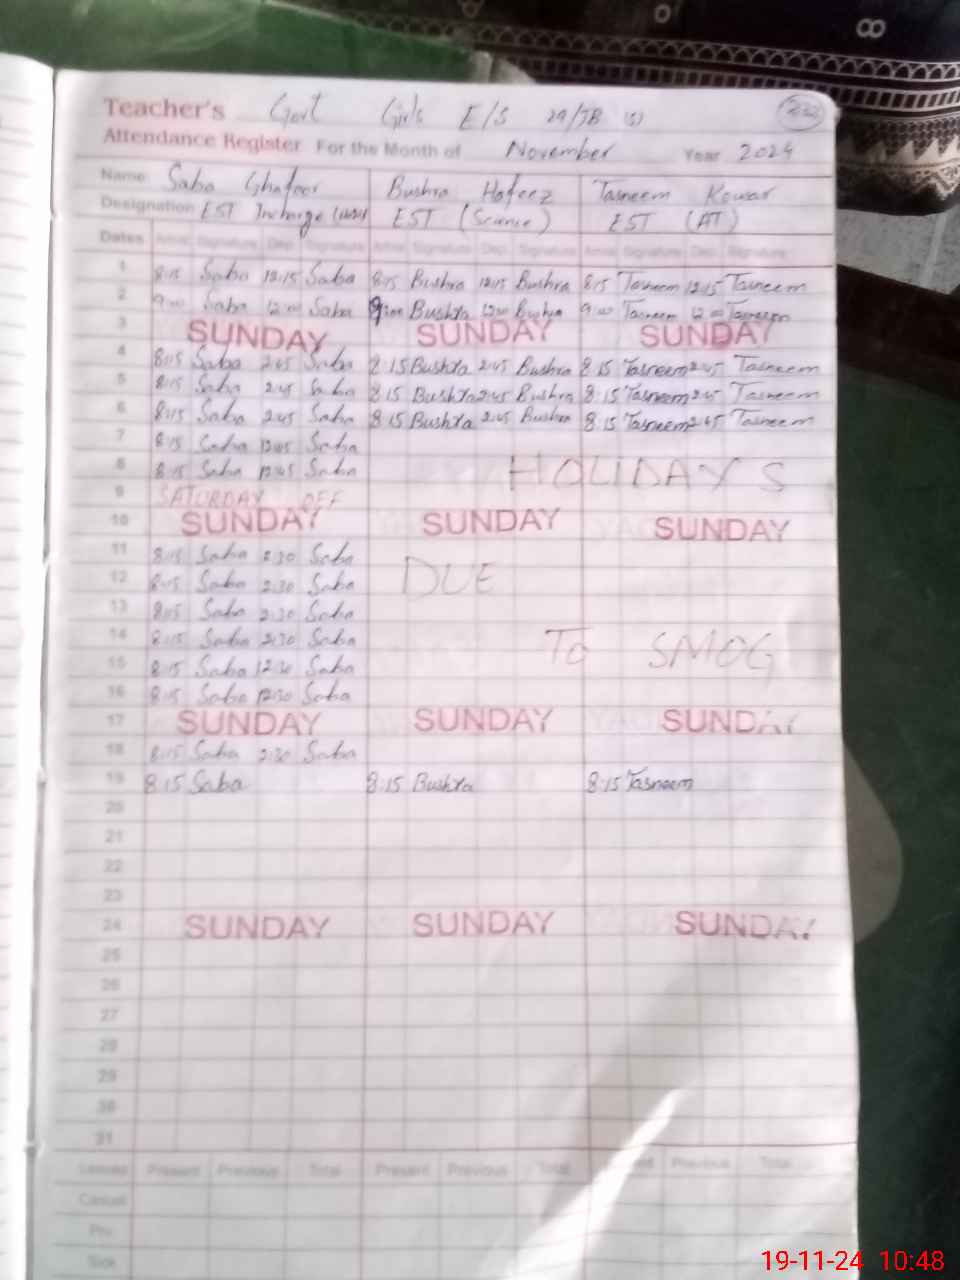 Teacher's Govt Girls E/S 29/JB (S)
Attendance Register For the Month of November Year 2024
Name: Saba Ghafoor Bushra Hafeez Tasneem Kowar
Designation EST Incharge EST (Science) EST (AT)
Dates Arrival Signature Dep. Signature Arrival Signature Dep. Signature Arrival Signature Dep. Signature
1 8:15 Saba 12:15 Saba 8:15 Bushra 12:15 Bushra 8:15 Tasneem 12:15 Tasneem
2 9:00 Saba 12:00 Saba 9:00 Bushra 12:00 Bushra 9:00 Tasneem 12:00 Tasneem
3 SUNDAY SUNDAY SUNDAY
4 8:15 Saba 2:45 Saba 8:15 Bushra 2:45 Bushra 8:15 Tasneem 2:45 Tasneem
5 8:15 Saba 2:45 Saba 8:15 Bushra 2:45 Bushra 8:15 Tasneem 2:45 Tasneem
6 8:15 Saba 2:45 Saba 8:15 Bushra 2:45 Bushra 8:15 Tasneem 2:45 Tasneem
7 8:15 Saba 12:45 Saba
8 8:15 Saba 12:45 Saba HOLIDAYS
9 SATURDAY OFF
10 SUNDAY SUNDAY SUNDAY
11 8:15 Saba 2:30 Saba
12 8:15 Saba 2:30 Saba DUE
13 8:15 Saba 2:30 Saba
14 8:15 Saba 2:30 Saba To SMOG
15 8:15 Saba 12:30 Saba
16 8:15 Saba 12:30 Saba
17 SUNDAY SUNDAY SUNDAY
18 8:15 Saba 2:30 Saba
19 8:15 Saba 8:15 Bushra 8:15 Tasneem
20
21
22
23
24 SUNDAY SUNDAY SUNDAY
25
26
27
28
29
30
31
Leaves Present Previous Total Present Previous Total Previous Total
Casual
Prv.
Sick
19-11-24 10:48